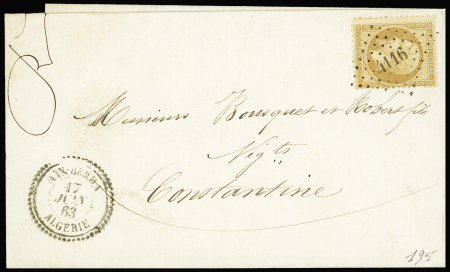 4116
Messieurs Bousquet et Robert fils
Négts
Constantine
17
63
ALGERIE
195